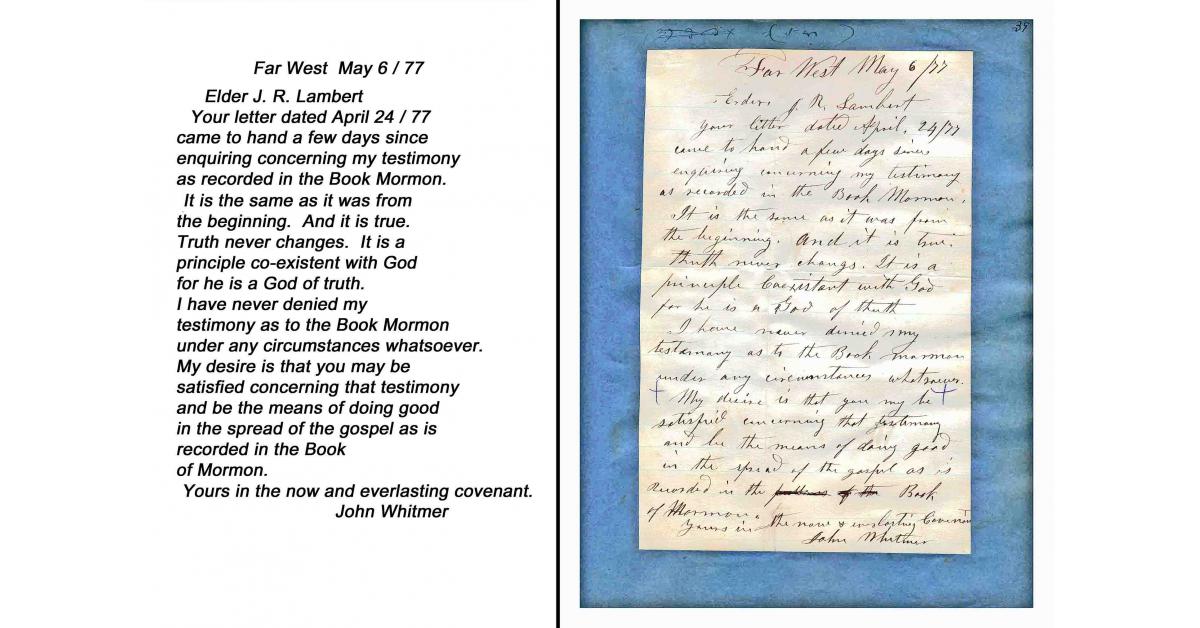 Far West May 6 / 77
Elder J. R. Lambert
Your letter dated April 24 / 77
came to hand a few days since
enquiring concerning my testimony
as recorded in the Book Mormon.
It is the same as it was from
the beginning. And it is true.
Truth never changes. It is a
principle co-existent with God
for he is a God of truth.
I have never denied my
testimony as to the Book Mormon
under any circumstances whatsoever.
My desire is that you may be
satisfied concerning that testimony
and be the means of doing good
in the spread of the gospel as is
recorded in the Book
of Mormon.
Yours in the now and everlasting covenant.
John Whitmer
39
Far West May 6/77
J. R. Lambert
your letter dated April, 24/77
came to hand a few days since
enquiring concerning my testimony
as recorded in the Book Mormon.
It is the same as it was from
the beginning. and it is true.
thuth never changs. It is a
principle Coexistant with God
for he is a God of thuth
I have never denied my
testamony as to the Book mormon
under any circumstances whatsoever.
My desire is that you my be
satisfied concerning that testimony
and be the means of doing good
in the spread of the gospel as is
Recorded in the Book
of Mormon.
Yours in the now & everlasting Covenant
John Whitmer